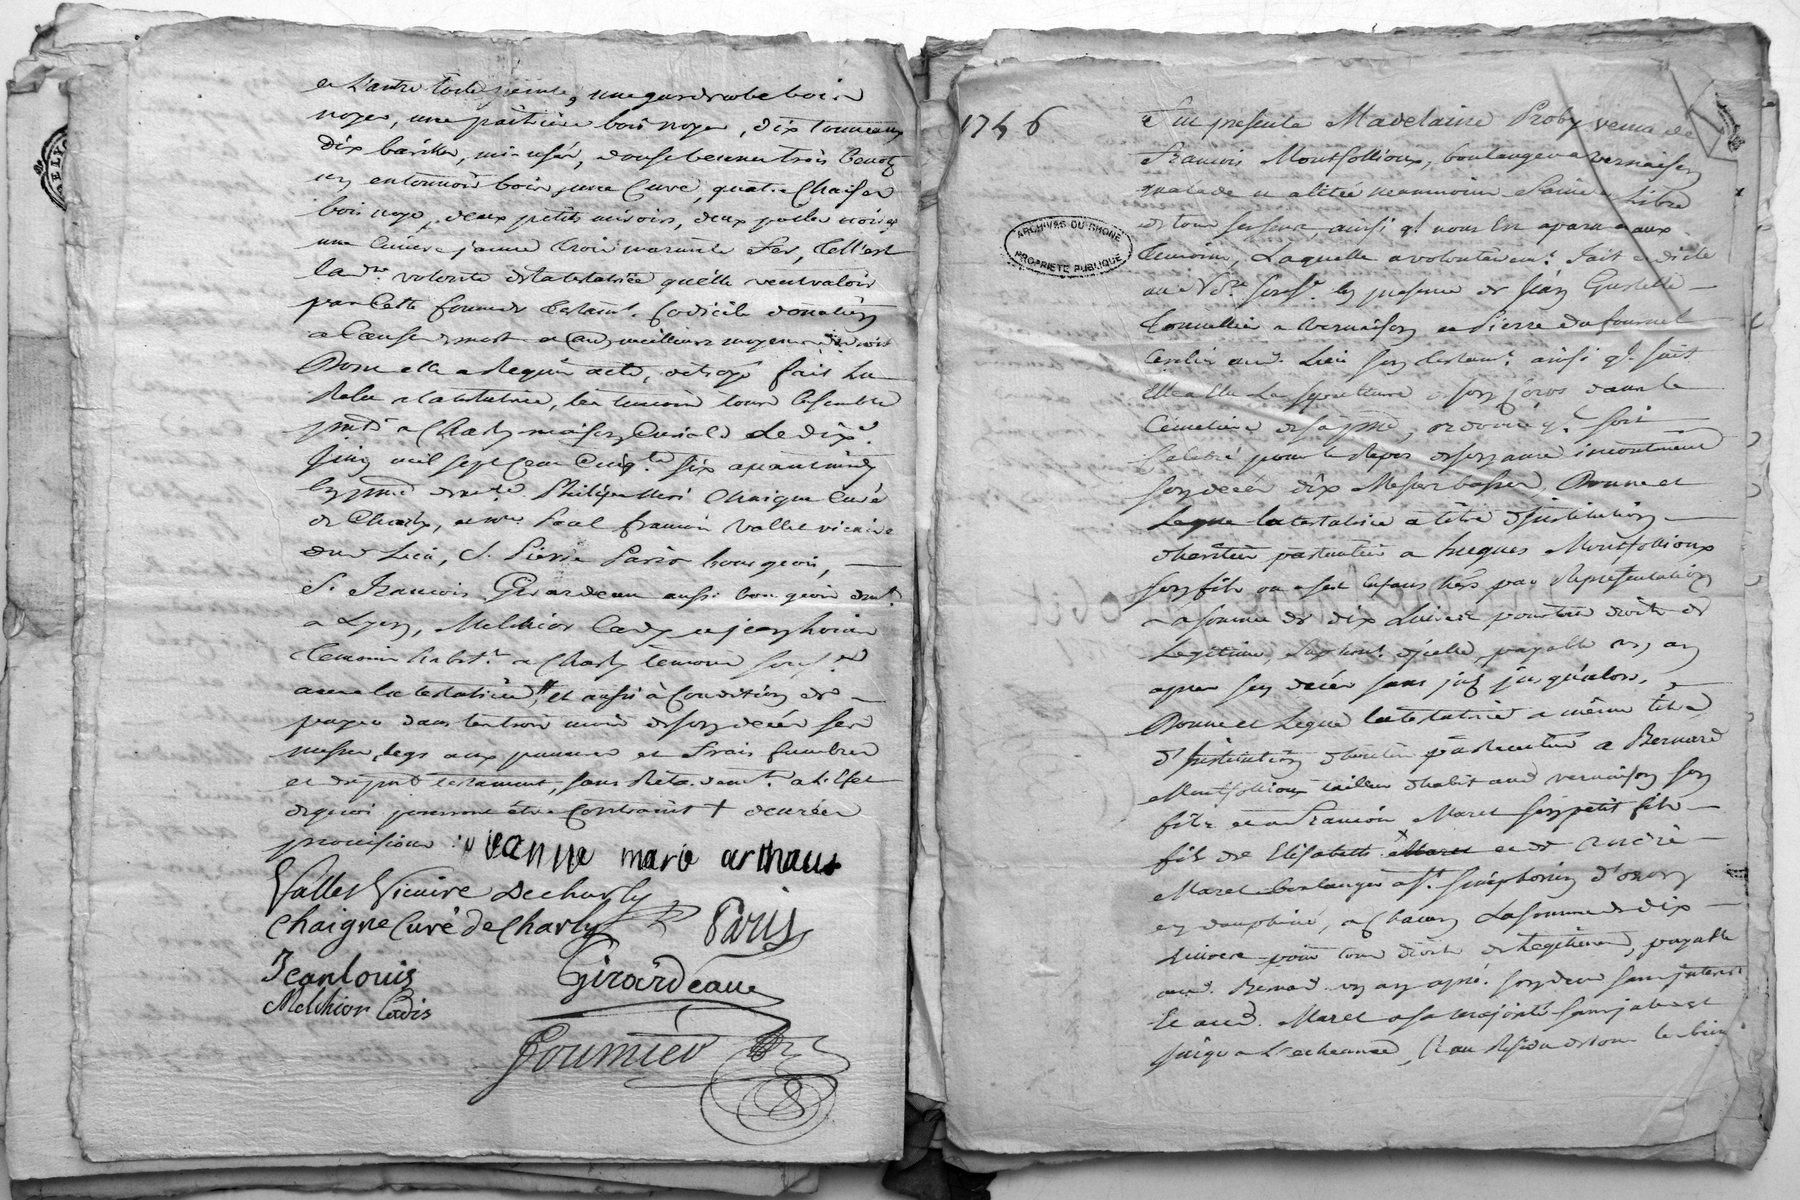 et l'autre toile peinte, une garderobe bois
noyer, une paitrière bois noyer, dix tonneaux
dix bariks, mi-usés, douse bennes trois benots
un entonnoir bois, une Cuve, quatre Chaises
bois noye, deux petits miroirs, deux poiles noires
une Cuiere jaune trois marmite Fer, telle est
la dre volonté de la testatrice qu'elle veut valoir
par cette forme de testamt. Codicile donation
a Cause de mort et aux meilleurs moyens de droit
Dont elle a Requis acte, octroyé fait Lu
Relu a la testatrice, les temoins tous ensemble
a Charly maison Curiale Le dix
Juin mil sept cent Cinqte six avant midy
en pnce de mre Philipe Chaigne Curé
de Charly, et mre Paul francois Vallet vicaire
dud Lieu, S. Pierre Paris bourgeois,
Sr. Francois Girardeau aussi bourgeois demt.
a Lyon, Melchior Cadis et jean louis
temoins habitt. a Charly temoins
avec la testatrice, et aussi à Condition de
payer dans les trois mois de son décés ses
messes, legs aux pauvres et Frais funebres
et du pnt testament, sans
de quoi pourront être Contraint + denrées
provisions
jeanne marie arthaus
Vallet Vicaire De charly
Chaigne Curé de Charly
Paris
Jean louis
Girardeau
Melchior Cadis
Fournier
1756
ARCHIVES DU RHONE
PROPRIETE PUBLIQUE
Fut presente Madelaine Proby veuve de
Francois Montfollioux, boulanger a vernaison
malade et alitée neammoins saine et Libre
de tous ses sens, ainsi q! nous En aparu et aux
temoins, Laquelle a volontairemt. fait et dicté
au Nore. sousé. en presence de Jean
Tonnellier a vernaison et Pierre dufournel
aud. Lieu son testamt. ainsi q! suit
Elle a Elu La sepulture de son corps dans le
Cimetiere de sa , ordonné q! soit
Celebré pour le Repos de son ame incontinent
son decés dix Messes basses, Donne et
Legue la testatrice a titre d'institution
d'heritier particulier a hugues Montfollioux
son fils ou a ses enfans nés par Representation
la somme de dix Livres pour tous droits de
Legitime, suplemt. d'icelle, payable un an
apres son decés sans jusqu'alors,
Donne et Legue la testatrice a même titre
d'Institution d'heritier particulier a Bernard
Montfollioux tailleur d'habit aud vernaison son
fils et a Francois Maret son petit fils
fils de Elisabeth Maret et de André
Maret boulanger a St. Simphorien d'ozon
en dauphiné, a chacun La somme de dix
Livres pour tous droits de Legitime, payable
aud. Bernard un an aprés son deces sans interest
Et aud. Maret a sa majorité sans interest
jusqu a L'echeance, Et au Residu de tous les biens